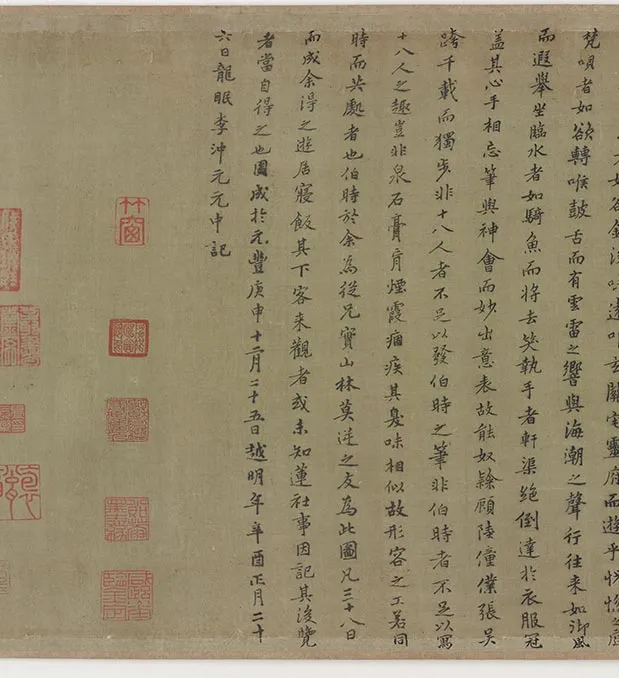 關宅靈府而遊乎恍惚之
梵唄者如欲轉喉鼓舌而有雲雷之響與海潮之聲行往来如御風
而遐舉坐臨水者如騎魚而将去笑執手者軒渠絕倒達於衣服冠
盖其心手相忘筆與神會而妙出意表故能奴隸顧陸僮僕張吳
跨千載而獨步非十八人者不足以發伯時之筆非伯時者不足以寫
十八人之趣豈非泉石膏肓煙霞痼疾其臭味相似故形容之工若同
時而共處者也伯時於余為從兄實山林莫逆之友為此圖凡三十八日
而成余得之遊居寢飯其下客来觀者或未知蓮社事因記其後覽
者當自得之也圖成於元豐庚申十二月二十五日越明年辛酉正月二十
六日龍眠李沖元元申記
竹窗